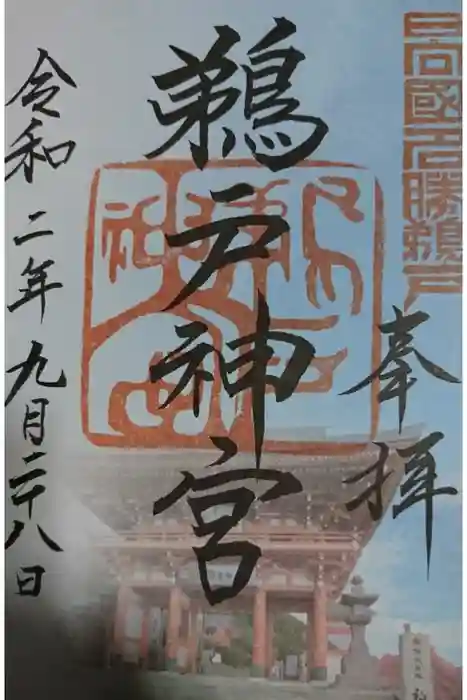 日向國名勝鵜戸
奉拝
鵜戸神宮
鵜戸
神宮
令和二年九月二十八日